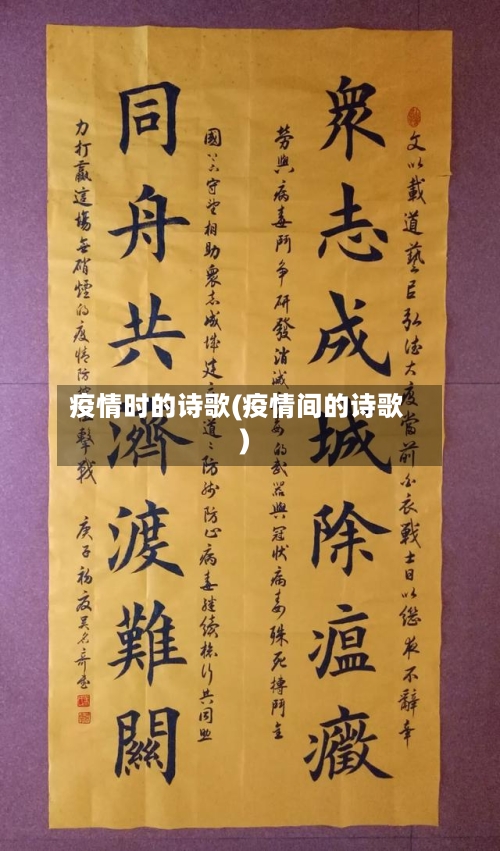 眾志成城除瘟癥
同舟共濟渡難關
文以載道藝臣弘德大疫當前白衣戰士日以繼夜不辭辛
勞與病毒鬥爭研發消滅病毒的武器與冠狀病毒殊死搏鬥全
國上下守望相助眾志成城建立道道防線防止病毒繼續橫行共同
力打贏這場無硝煙的疫情防控阻擊戰
庚子初夏吳
疫情时的诗歌(疫情间的诗歌
)